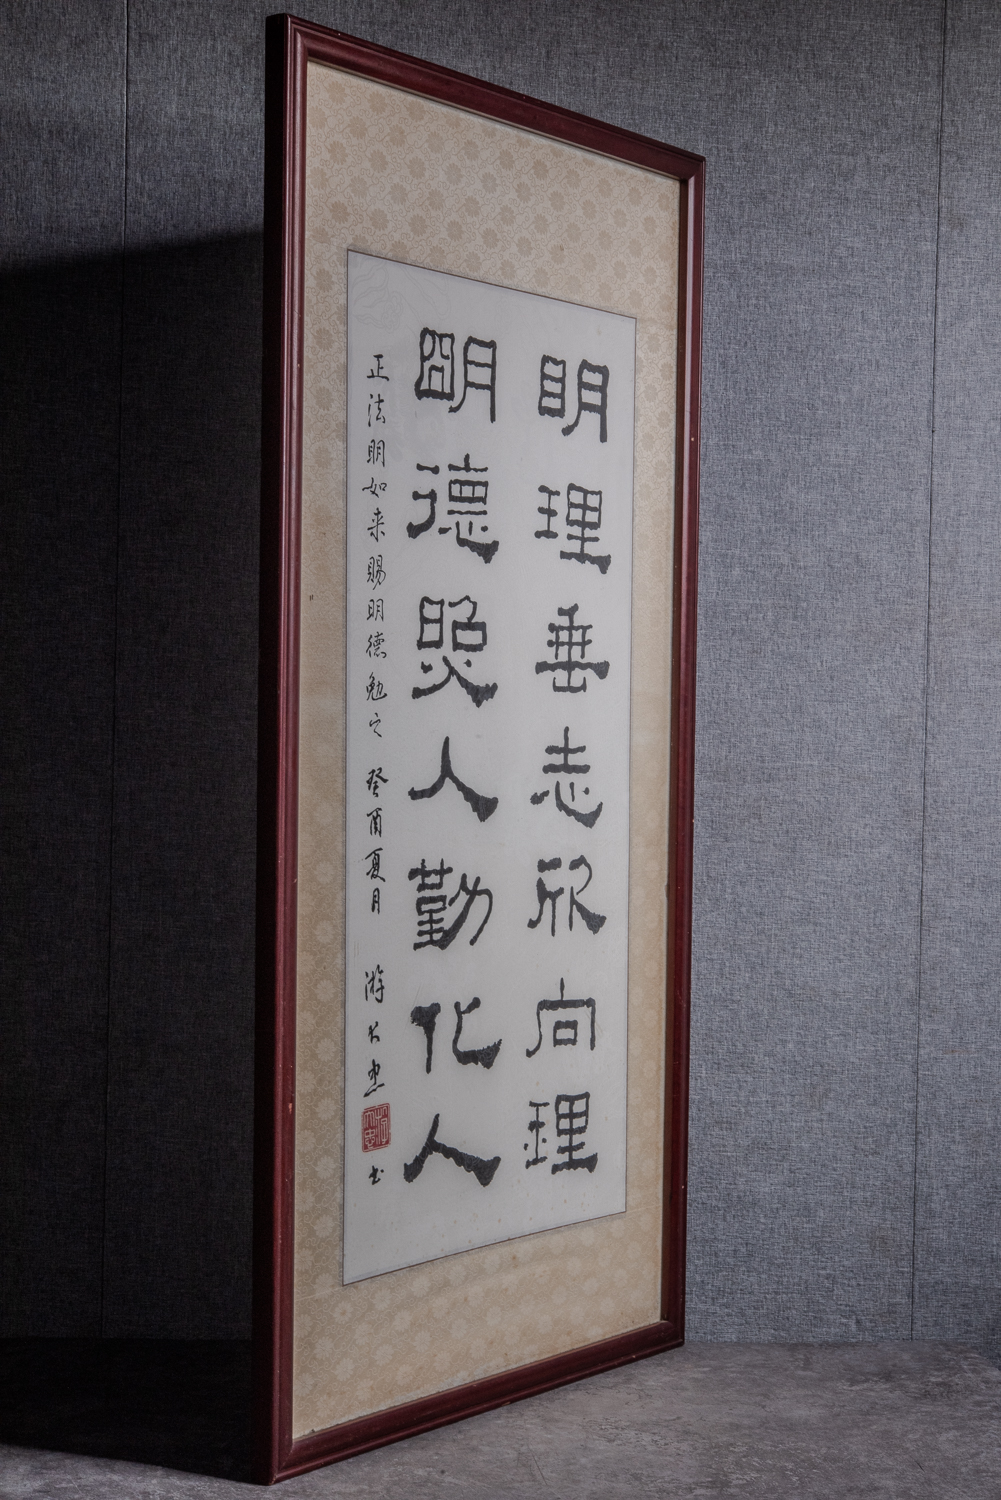 明理垂志欣向理
明德照人勤化人
正法明如来賜明德勉之 癸酉夏月 游 書